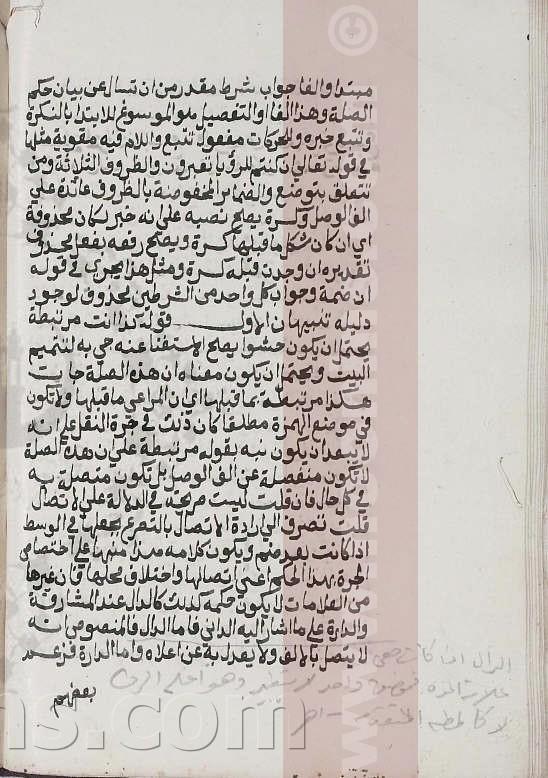 مبتدا والفا جواب شرط مقدر من ان تسال عن بيان حكم
الصلة وهذا الفا او التفصيل هو المسوغ للابتدا بالنكرة
وتتبع خبره وللحركات مفعول تتبع واللام فيه مقوية مثلها
في قوله تعالي ان كنتم للرؤيا تعبرون والظروف الثلاثة ومن
تتعلق بتوضع والضماير المخفوضة بالظروف عائدة علي
الف الوصل وكسرة يصلح نصبه علي انه خبر لكان محذوفة
اي ان كان شكل ما قبلها كسرة ويصح رفعه بفعل محذوف
تقديره ان وجدت قبله كسرة ومثل هذا يجري في قوله
ان ضمة وجواب كل واحد من الشرطين محذوف لوجود
دليله تنبيهان الاول قوله كذا انت مرتبطة
يحتمل ان يكون حشوا يصلح الاستغنا عنه جي به لتتميم
البيت ويحتمل ان يكون معناه ان هذه الصلة جات
هكذا مرتبطة بما قبلها اي ان المراعي ما قبلها ولا تكون
في موضع الهمزة مطلقا كان ذلك في جرة النقل علي انه
لا يبعد ان يكون نبه بقوله مرتبطة علي ان هذه الصلة
لا تكون منفصلة عن الف الوصل بل تكون متصلة به
في كل حال فان قلت ليست صريحة في الدلالة علي الاتصال
قلت تصرف الي ارادة الاتصال بالتصريح بجعلها في الوسط
اذا كانت بعد ضم ويكون كلامه هذا منبها علي اختصاص
الجرة بهذا الحكم اعني اتصالها واختلاف محلها فان غيرها
من العلامات لا يكون حكمه كذلك كالدال عند المشارقة
والدارة علي ما اشار اليه الداني فاما الدال فالمنصوص انه
لا يتصل بالالف ولا يعدل به عن اعلاه واما الدارة فزعم
بعضهم
الدال اذا كانت هي
علامة
واحد وهو اعلم
لا اهـ
ns.com